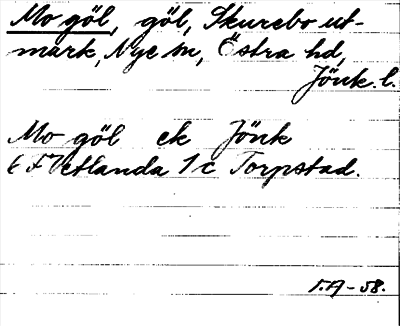 Mo göl, göl, Skurebo ut-
mark, Nye sn, Östra hd,
Jönk. l.
Mo göl ek Jönk
6 F Vetlanda 1 c Torpstad.
T.A-58.